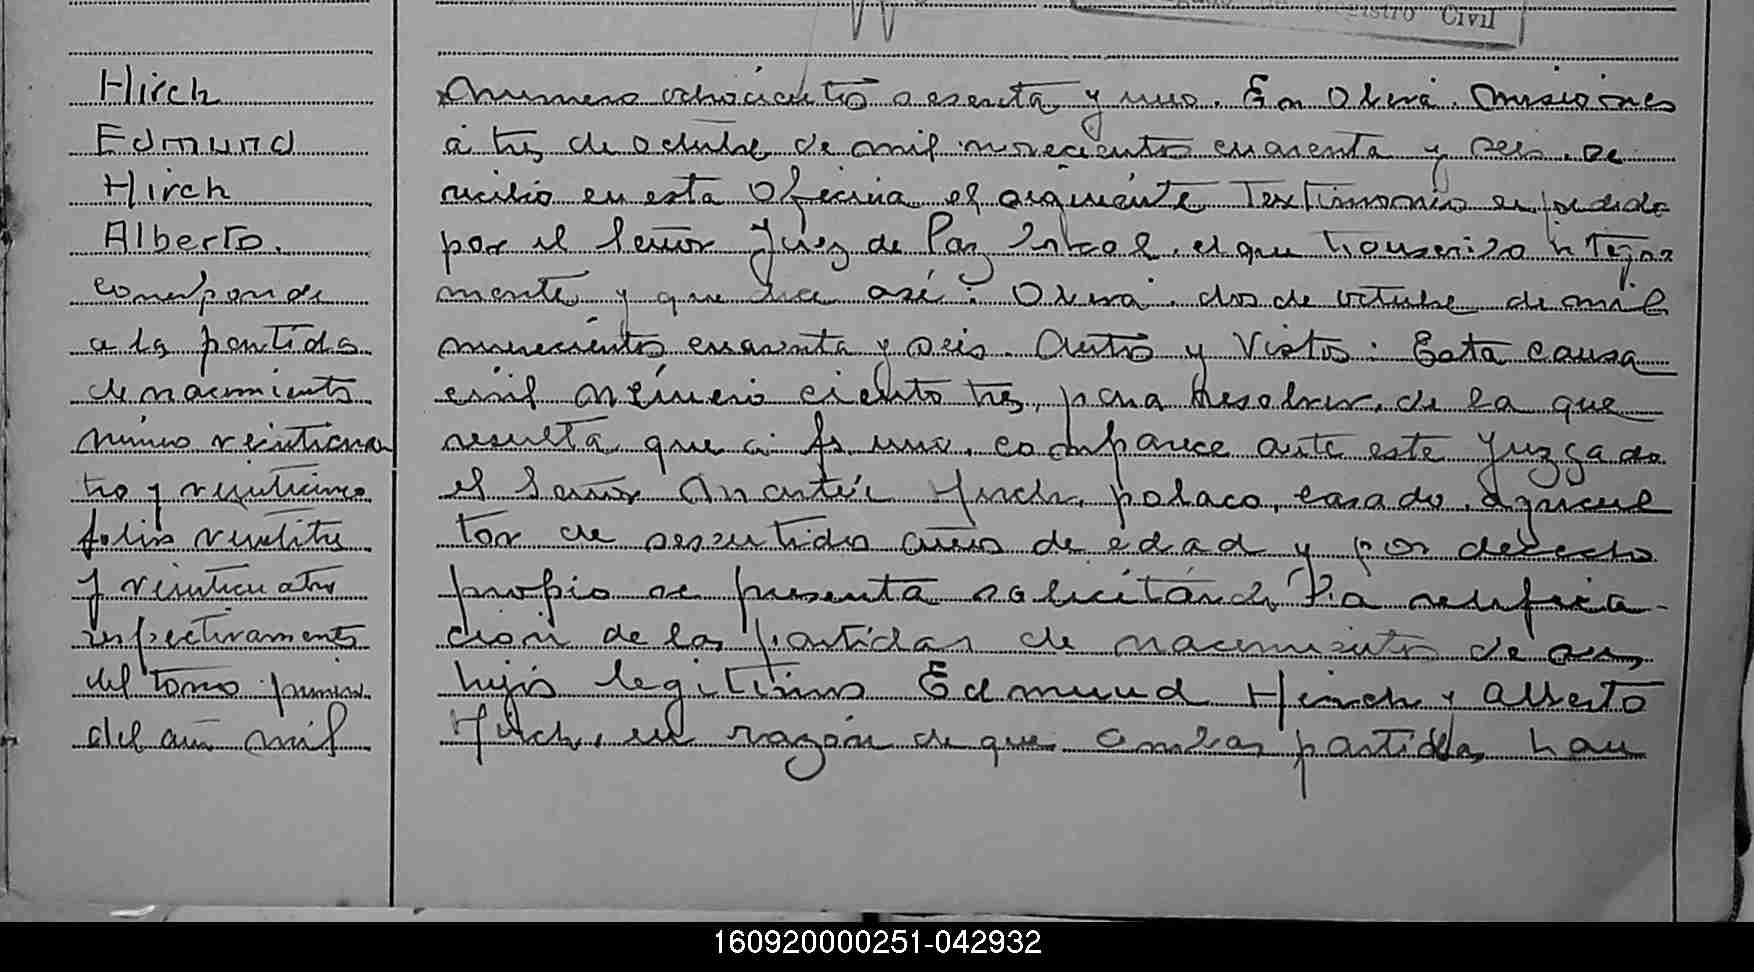 Registro Civil
Hirch
Edmund
Hirch
Alberto.
corresponde
a la partida
de nacimiento
número veinticua
tro y veinticinco
folios veintitres
y veinticuatro
respectivamente
del tomo primero
del año mil
Numero ochocientos sesenta y uno. En Oberá. Misiones
á tres de octubre de mil novecientos cuarenta y seis. se
recibió en esta Oficina el siguiente Testimonio expedido
por el Señor Juez de Paz Local, el que transcribo integra
mente y que dice así: Oberá. dos de octubre de mil
novecientos cuarenta y seis. Autos y Vistos: Esta causa
civil número ciento tres, para resolver, de la que
resulta que a fs. una, comparece ante este Juzgado
el Señor Hirch, polaco, casado, agricul
tor de sesentidos años de edad y por derecho
propio se presenta solicitando la retifica-
cion de las partidas de nacimientos de sus
hijos legitimos Edmund Hirch y Alberto
Hirch, en razón de que ambas partidas han
160920000251-042932